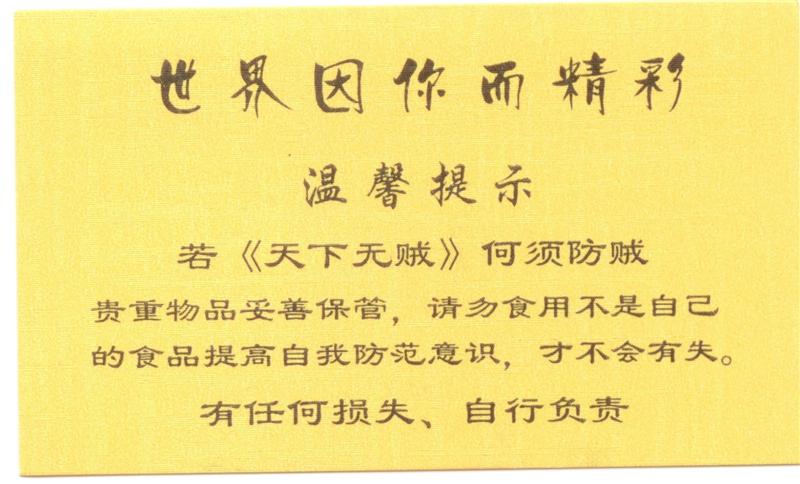 世界因你而精彩
温馨提示
若《天下无贼》何须防贼
贵重物品妥善保管，请勿食用不是自己
的食品提高自我防范意识，才不会有失。
有任何损失、自行负责